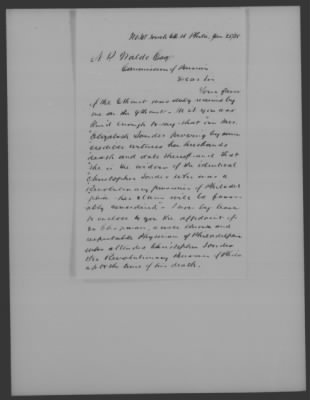 South 6th St Phila. Jan 25/58
Waldo Esq
Commissioner of Pensions
Dear Sir
Your favor
of the 6th inst was duly received by
me on the 9th inst. In it you are
kind enough to say that "on Mrs.
Elizabeth Sonder proving by some
credible witness her husbands
death and date thereof and that
she is the widow of the identical
Christopher Sonder who was a
Revolutionary pensioner of Philadel
phia her claim will be favor
ably considered. I now beg leave
to enclose to you the affidavit of
Dr Chapman, a well known and
respectable Physician of Philadelphia
who attended Christopher Sonder
the Revolutionary Pensioner of Phila
up to the time of his death.